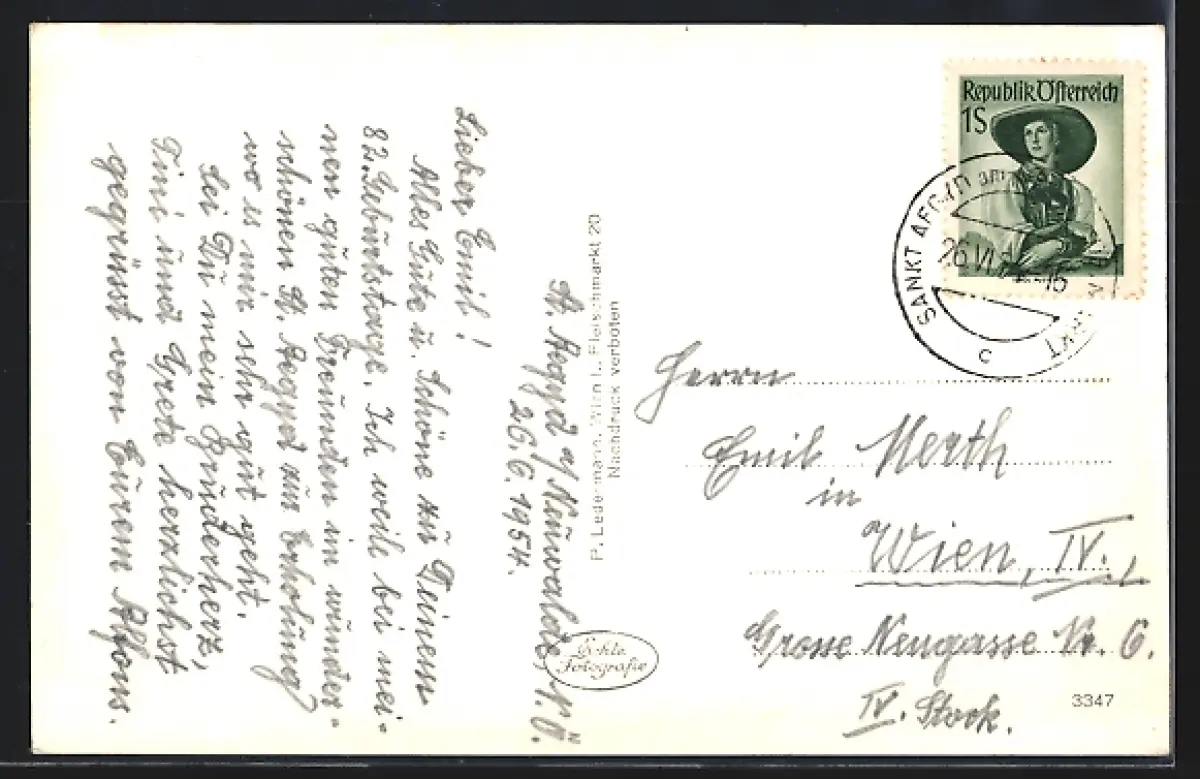 St. Aegyd a/Neuwalde, N.Ö.
26.6.1954.
Lieber Emil!
Alles Gute u. Schöne zu Deinem
82. Geburtstage. Ich weile bei mei-
nen guten Freunden im wunder-
schönen St. Aegyd zur Erholung
wo es mir sehr gut geht.
Sei Du mein Bruderherz,
Tini und Grete herzlichst
gegrüsst von Eurem Alfons.
P. Ledermann, Wien I., Fleischmarkt 20
Nachdruck verboten
Echte
Fotografie
Republik Österreich
1S
SANKT AEGYD am
MARKT
26.VI
c
Herrn
Emil Merth
in
Wien, IV.,
Grosse Neugasse Nr. 6.
IV. Stock.
3347